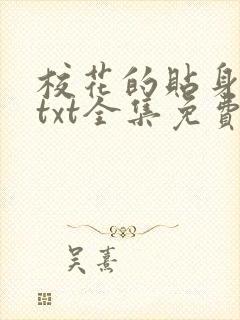 校花的貼身
txt全集免費
吴熹